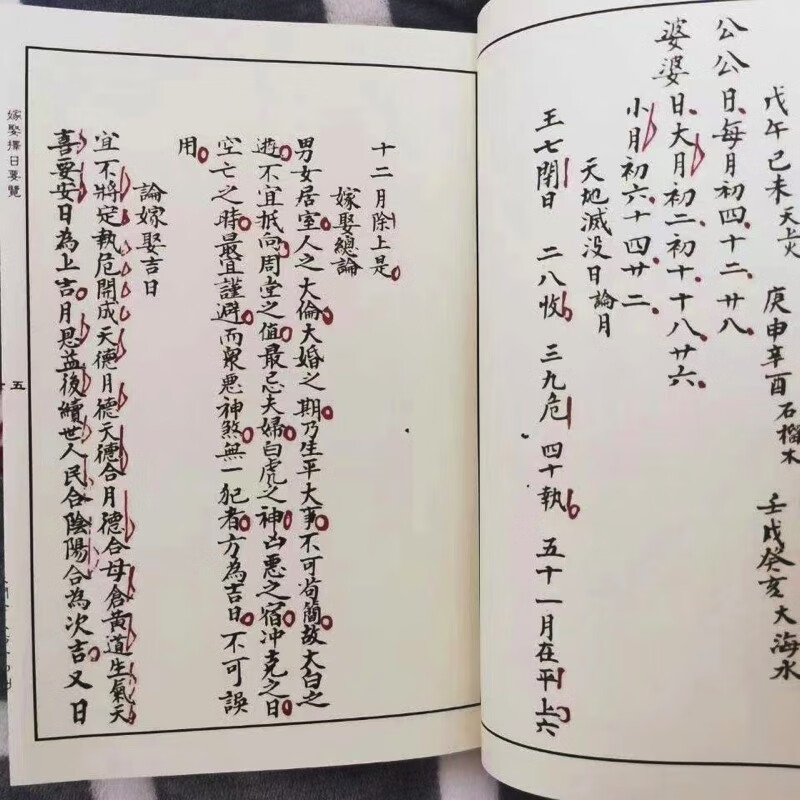 戊午己未天上火　庚申辛酉石榴木　壬戌癸亥大海水
公公日每月初四十二廿八
婆婆日大月初二初十十八廿六
小月初六十四廿二
天地滅没日論月
王七閉日　二八收　三九危　四十執　五十一月在平上六
十二月除上是
嫁娶總論
男女居室人之大倫大婚之期乃生平大事不可茍簡故太白之
遊不宜抵向周堂之值最忌夫婦白虎之神凶惡之宿冲克之日
空亡之時最宜謹避而衆悪神煞無一犯者方為吉日不可誤
用
論嫁娶吉日
宜不將定執危開成天德月德天德合月德合母倉黃道生氣天
喜要安日為上吉月恩益後續世人民合陰陽合為次吉又日
嫁娶擇日要覽
五